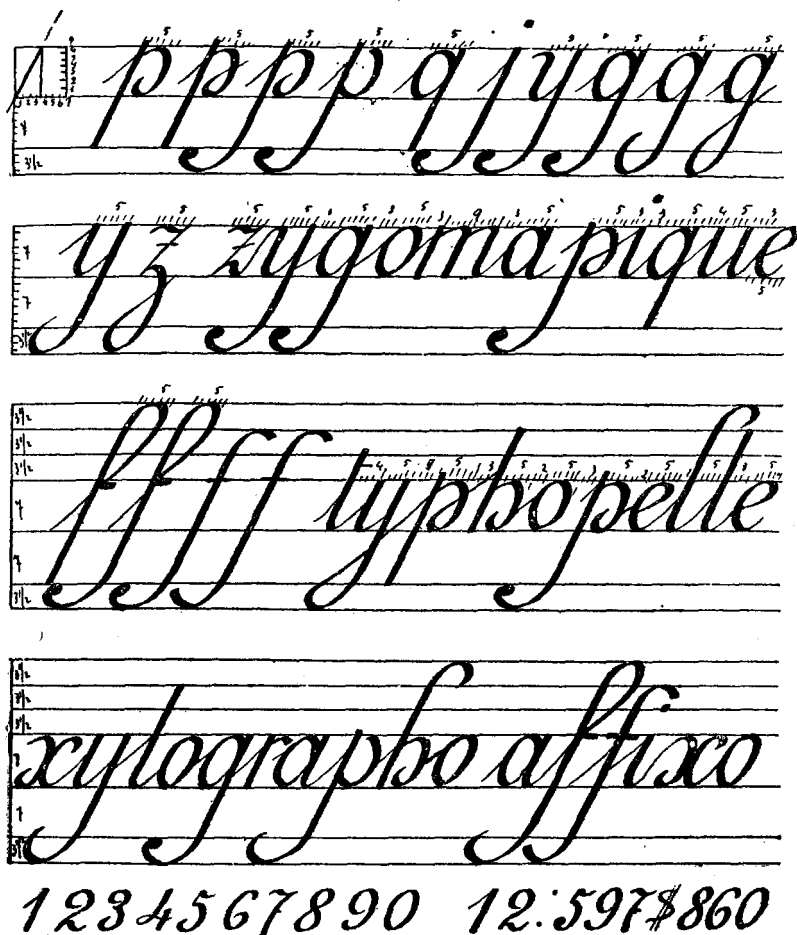 p p p p q j y g g g
y z zygoma pique
f f f f typhopelle
xylographo affixo
1 2 3 4 5 6 7 8 9 0 12:597$860